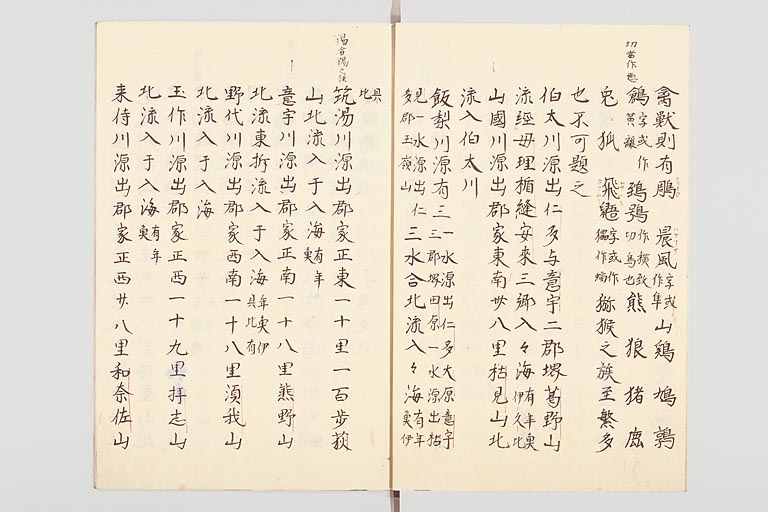 禽獸則有鵰 晨風字或作隼山鷄鳩鶉
鶬字或作離黄鴟鴞作横致切惡鳥也熊 狼 猪 鹿
兎 狐 飛鼯字或作猵作蝠獼猴之族至繁多
也不可題之
伯太川源出仁多与意宇二郡堺葛野山
流經母理楯縫安来三郷入々海有年魚伊久比
山國川源出郡家東南廿八里枯見山北
流入伯太川
飯梨川源有三一水源出仁多大原意宇三郡堺田原一水源出枯
見一水源出仁多郡玉嶺山三水合北流入々海有年魚伊
具比
筑湯川源出郡家正東一十里一百歩荻
山北流入于入海有年魚
意宇川源出郡家正南一十八里熊野山
北流東折流入于入海年魚伊具比有
野代川源出郡家西南一十八里須我山
北流入于入海
玉作川源出郡家正西一十九里拝志山
北流入于入海有年魚
来待川源出郡家正西廿八里和奈佐山